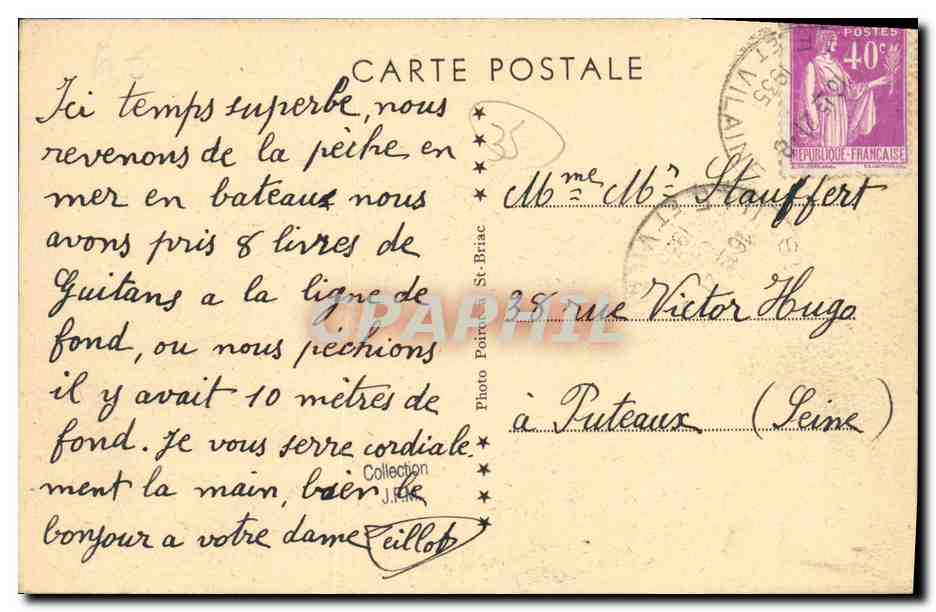 CARTE POSTALE
Ici temps superbe, nous
revenons de la pèche en
mer en bateaux nous
avons pris 8 livres de
Guitans a la ligne de
fond, ou nous péchions
il y avait 10 mètres de
fond. Je vous serre cordiale
ment la main, bien le
bonjour a votre dame
35
Photo Poirot à St-Briac
Mme Mr Stauffert
38 rue Victor Hugo
à Puteaux (Seine)
POSTES
40c
REPUBLIQUE-FRANÇAISE
ET VILAINE
1935
CPAPHIL
Collection
J.F.M.